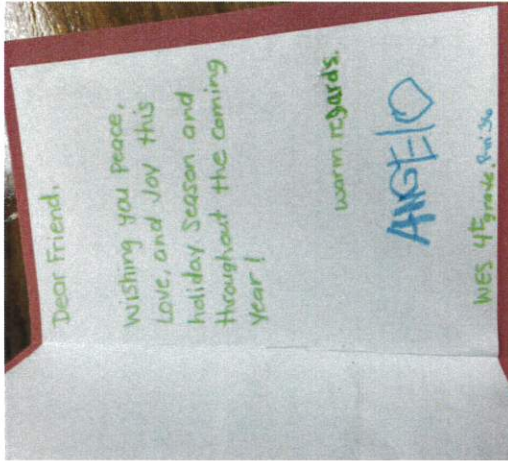 Dear Friend,
Wishing you peace,
Love, and Joy this
holiday season and
throughout the coming
year!
warm regards,
ANGElO
WES 4th grade